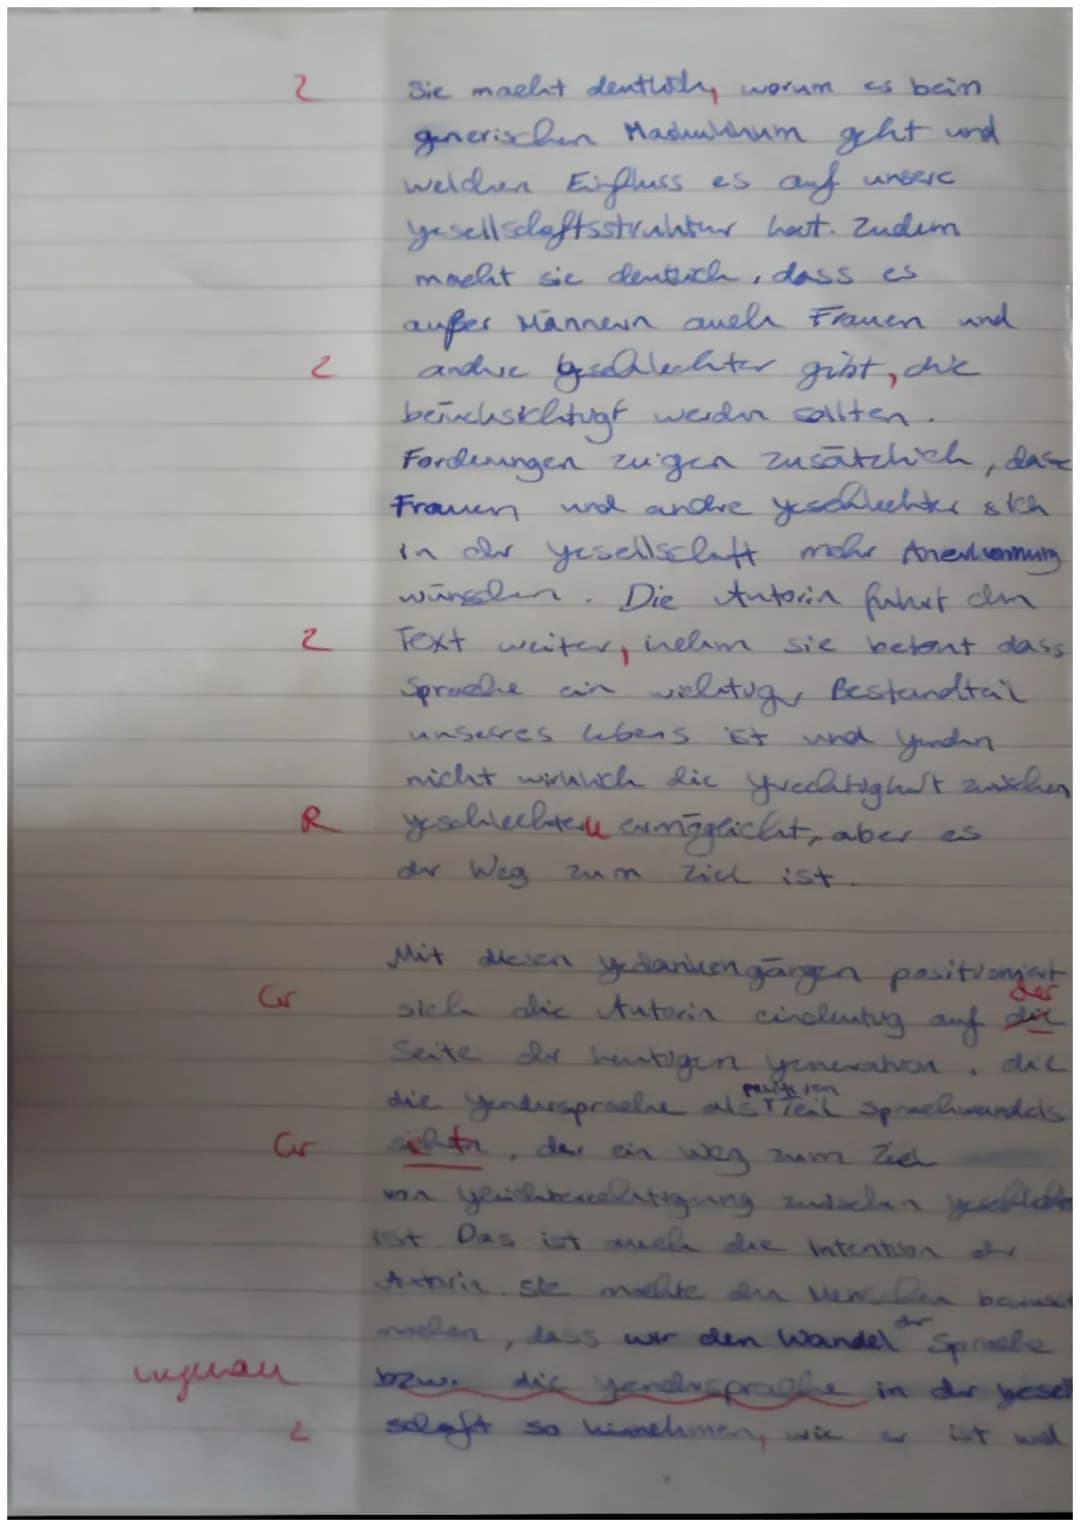 Z Sie macht deutlich, worum es beim
generischen Maskulinum geht und
welchen Einfluss es auf unsere
gesellschaftsstruktur hat. Zudem
macht sie deutlich, dass es
außer Männern auch Frauen und
Z andre geschlechter gibt, die
berücksichtigt werden sollten.
Forderungen zeigen zusätzlich, dass
Frauen und andre geschlechter sich
in der gesellschaft mehr Anerkennung
wünschen. Die Autorin führt den
Z Text weiter, indem sie betont dass
Sprache ein wichtiger Bestandteil
unseres lebens ist und gendern
nicht wirklich die gerechtigkeit zwischen
R geschlechtern ermöglicht, aber es
der Weg zum Ziel ist.
Mit diesen gedankengängen positioniert
der
Gr sich die Autorin eindeutig auf die
Seite der heutigen generation, die
position
die gendersprache als Teil Sprachwandels
Gr , der ein Weg zum Ziel
von gleichberechtigung zwischen
ist Das ist auch die Intention der
Autorin. Sie möchte den Menschen bewusst
machen, dass wir den Wandel der Sprache
ungenau bzw. die gendersprache in der gesell
Z schaft so hinnehmen, wie er ist und